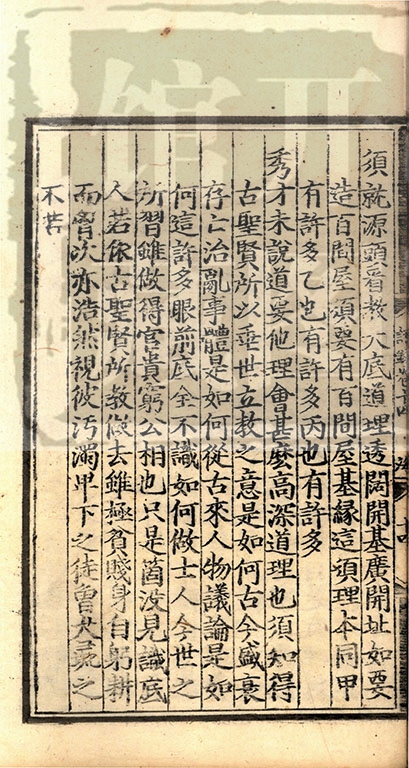 須就源頭看教大底道理透闊開基廣開址如要
造百間屋須要有百間屋基緣這須理本同甲
有許多乙也有許多丙也有許多
秀才未說道要他理會甚麼高深道理也須知得
古聖賢所以垂世立教之意是如何古今盛衰
存亡治亂事體是如何從古來人物議論是如
何這許多眼前底全不識如何做士人今世之
所習雖做得官貴窮公相也只是箇沒見識底
人若依古聖賢所教做去雖極貧賤身自躬耕
而胷次亦浩然視彼污濁卑下之徒曾犬彘之
不若